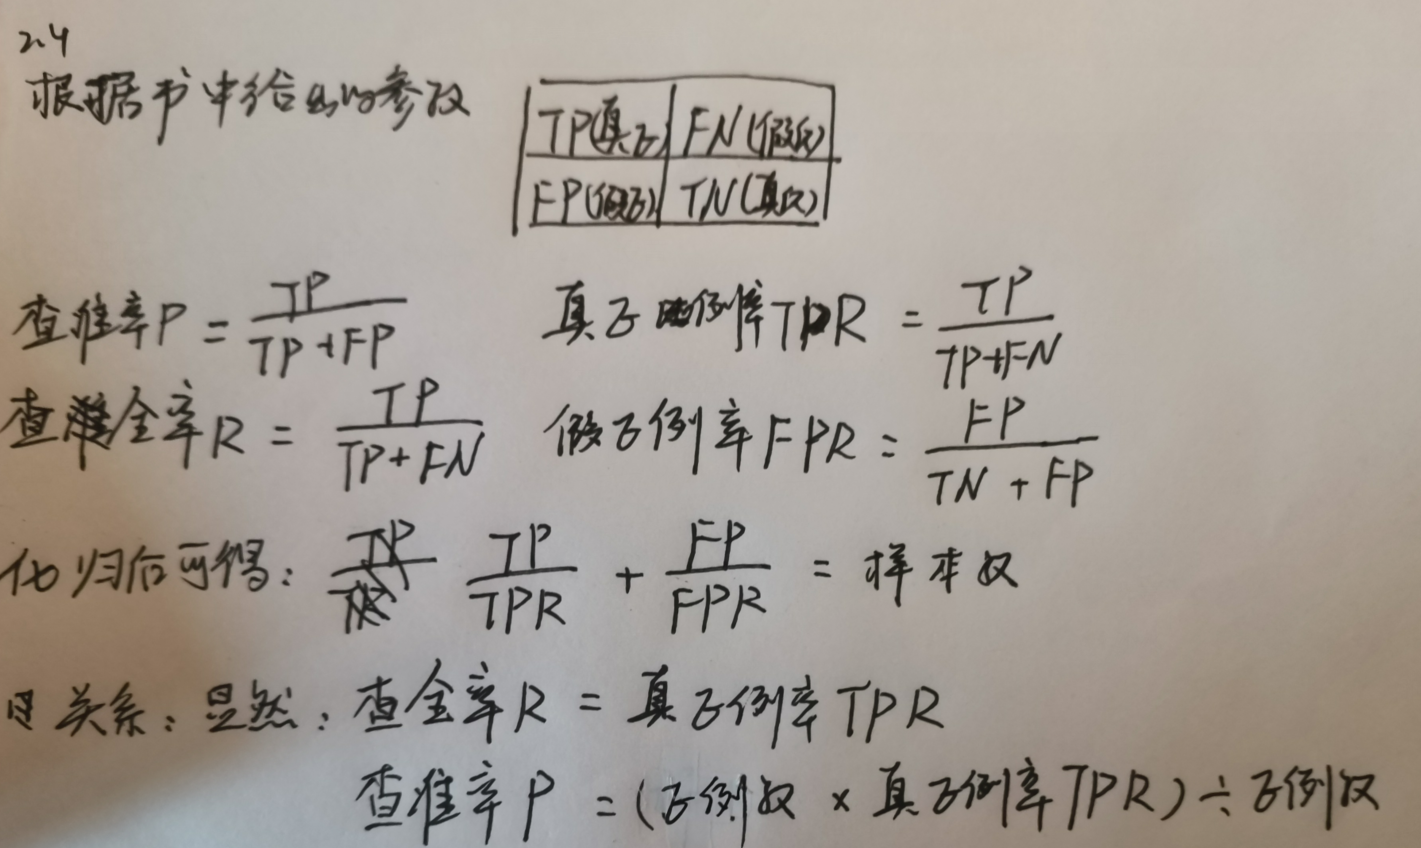 2.4
根据书中给出的参数
TP(真正) FN(假反)
FP(假正) TN(真反)
查准率P = TP/(TP+FP) 真正例率TPR = TP/(TP+FN)
查全率R = TP/(TP+FN) 假正例率FPR = FP/(TN+FP)
化归后可得: TP/TPR + FP/FPR = 样本数
关系: 显然: 查全率R = 真正例率TPR
查准率P = (正例数 × 真正例率TPR) ÷ 正例数